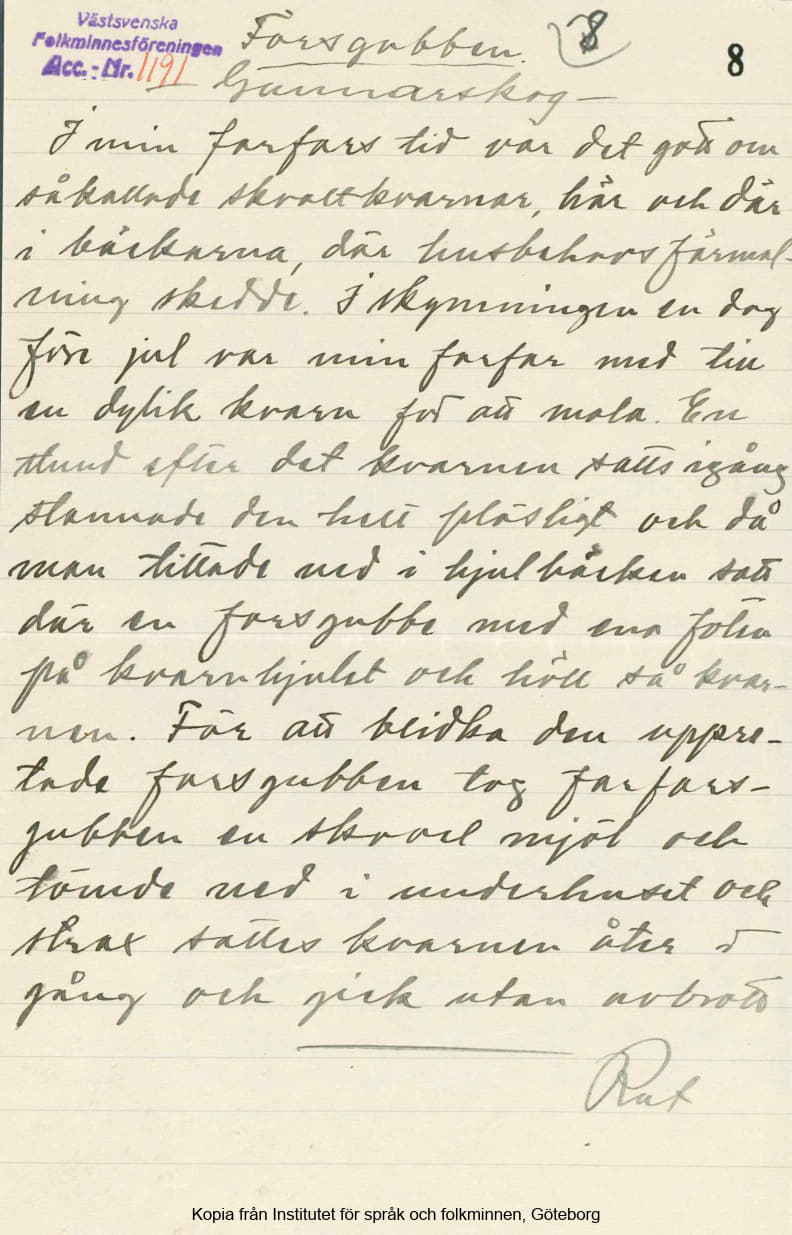 Västsvenska
Folkminnesföreningen
Acc.-Nr. 1191
8
8
Forsgubben.
Gunnarskog –
I min farfars tid var det gott om
såkallade skvaltkvarnar, här och där
i bäckarna, där husbehovsförmal-
ning skedde. I skymningen en dag
före jul var min farfar med till
en dylik kvarn för att mala. En
stund efter det kvarnen satts igång
stannade den helt plösligt och då
man tittade ned i hjulbäcken satt
där en forsgubbe med ena foten
på kvarnhjulet och höll så kvar-
nen. För att blidka den uppre-
tade forsgubben tog farfars-
gubben en skovel mjöl och
tömde ned i underhuset och
strax sattes kvarnen åter i
gång och gick utan avbrott
Rut
Kopia från Institutet för språk och folkminnen, Göteborg